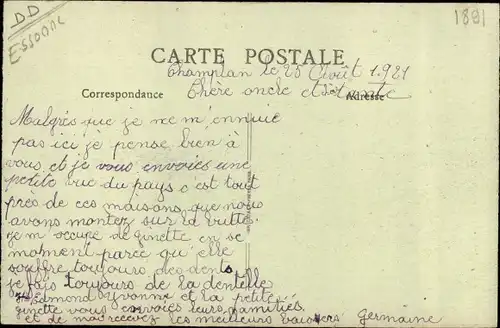 DD
ESSONNE
1891
CARTE POSTALE
Champlan le 25 Août 1921
Correspondance
Adresse
Chère oncle et tante
Malgrés que je ne m'ennuie
pas ici je pense bien à
vous et je vous envoies une
petite vue du pays c'est tout
près de ces maisons que nous
avons montez sur la butte.
je m'occupe de ginette en se
moment parce qu'elle
souffre toujours des dents
je fais toujours de la dentelle
Edmond Yvonne et la petite
ginette vous envoies leurs amitiés
et de moi recevez les meilleurs baisers Germaine